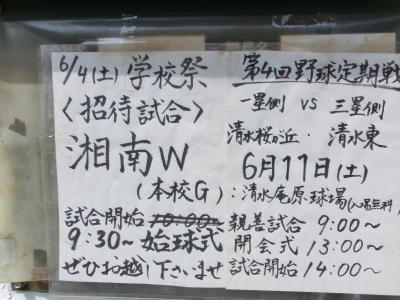 6/4(土) 学校祭
〈招待試合〉
湘南W
(本校G)
試合開始 10:00~
9:30~ 始球式
ぜひお越し下さいませ
第4回野球定期戦
一塁側 VS 三塁側
清水桜が丘・清水東
6月11日(土)
:清水庵原球場(入場無料)
親善試合 9:00~
開会式 13:00~
試合開始 14:00~